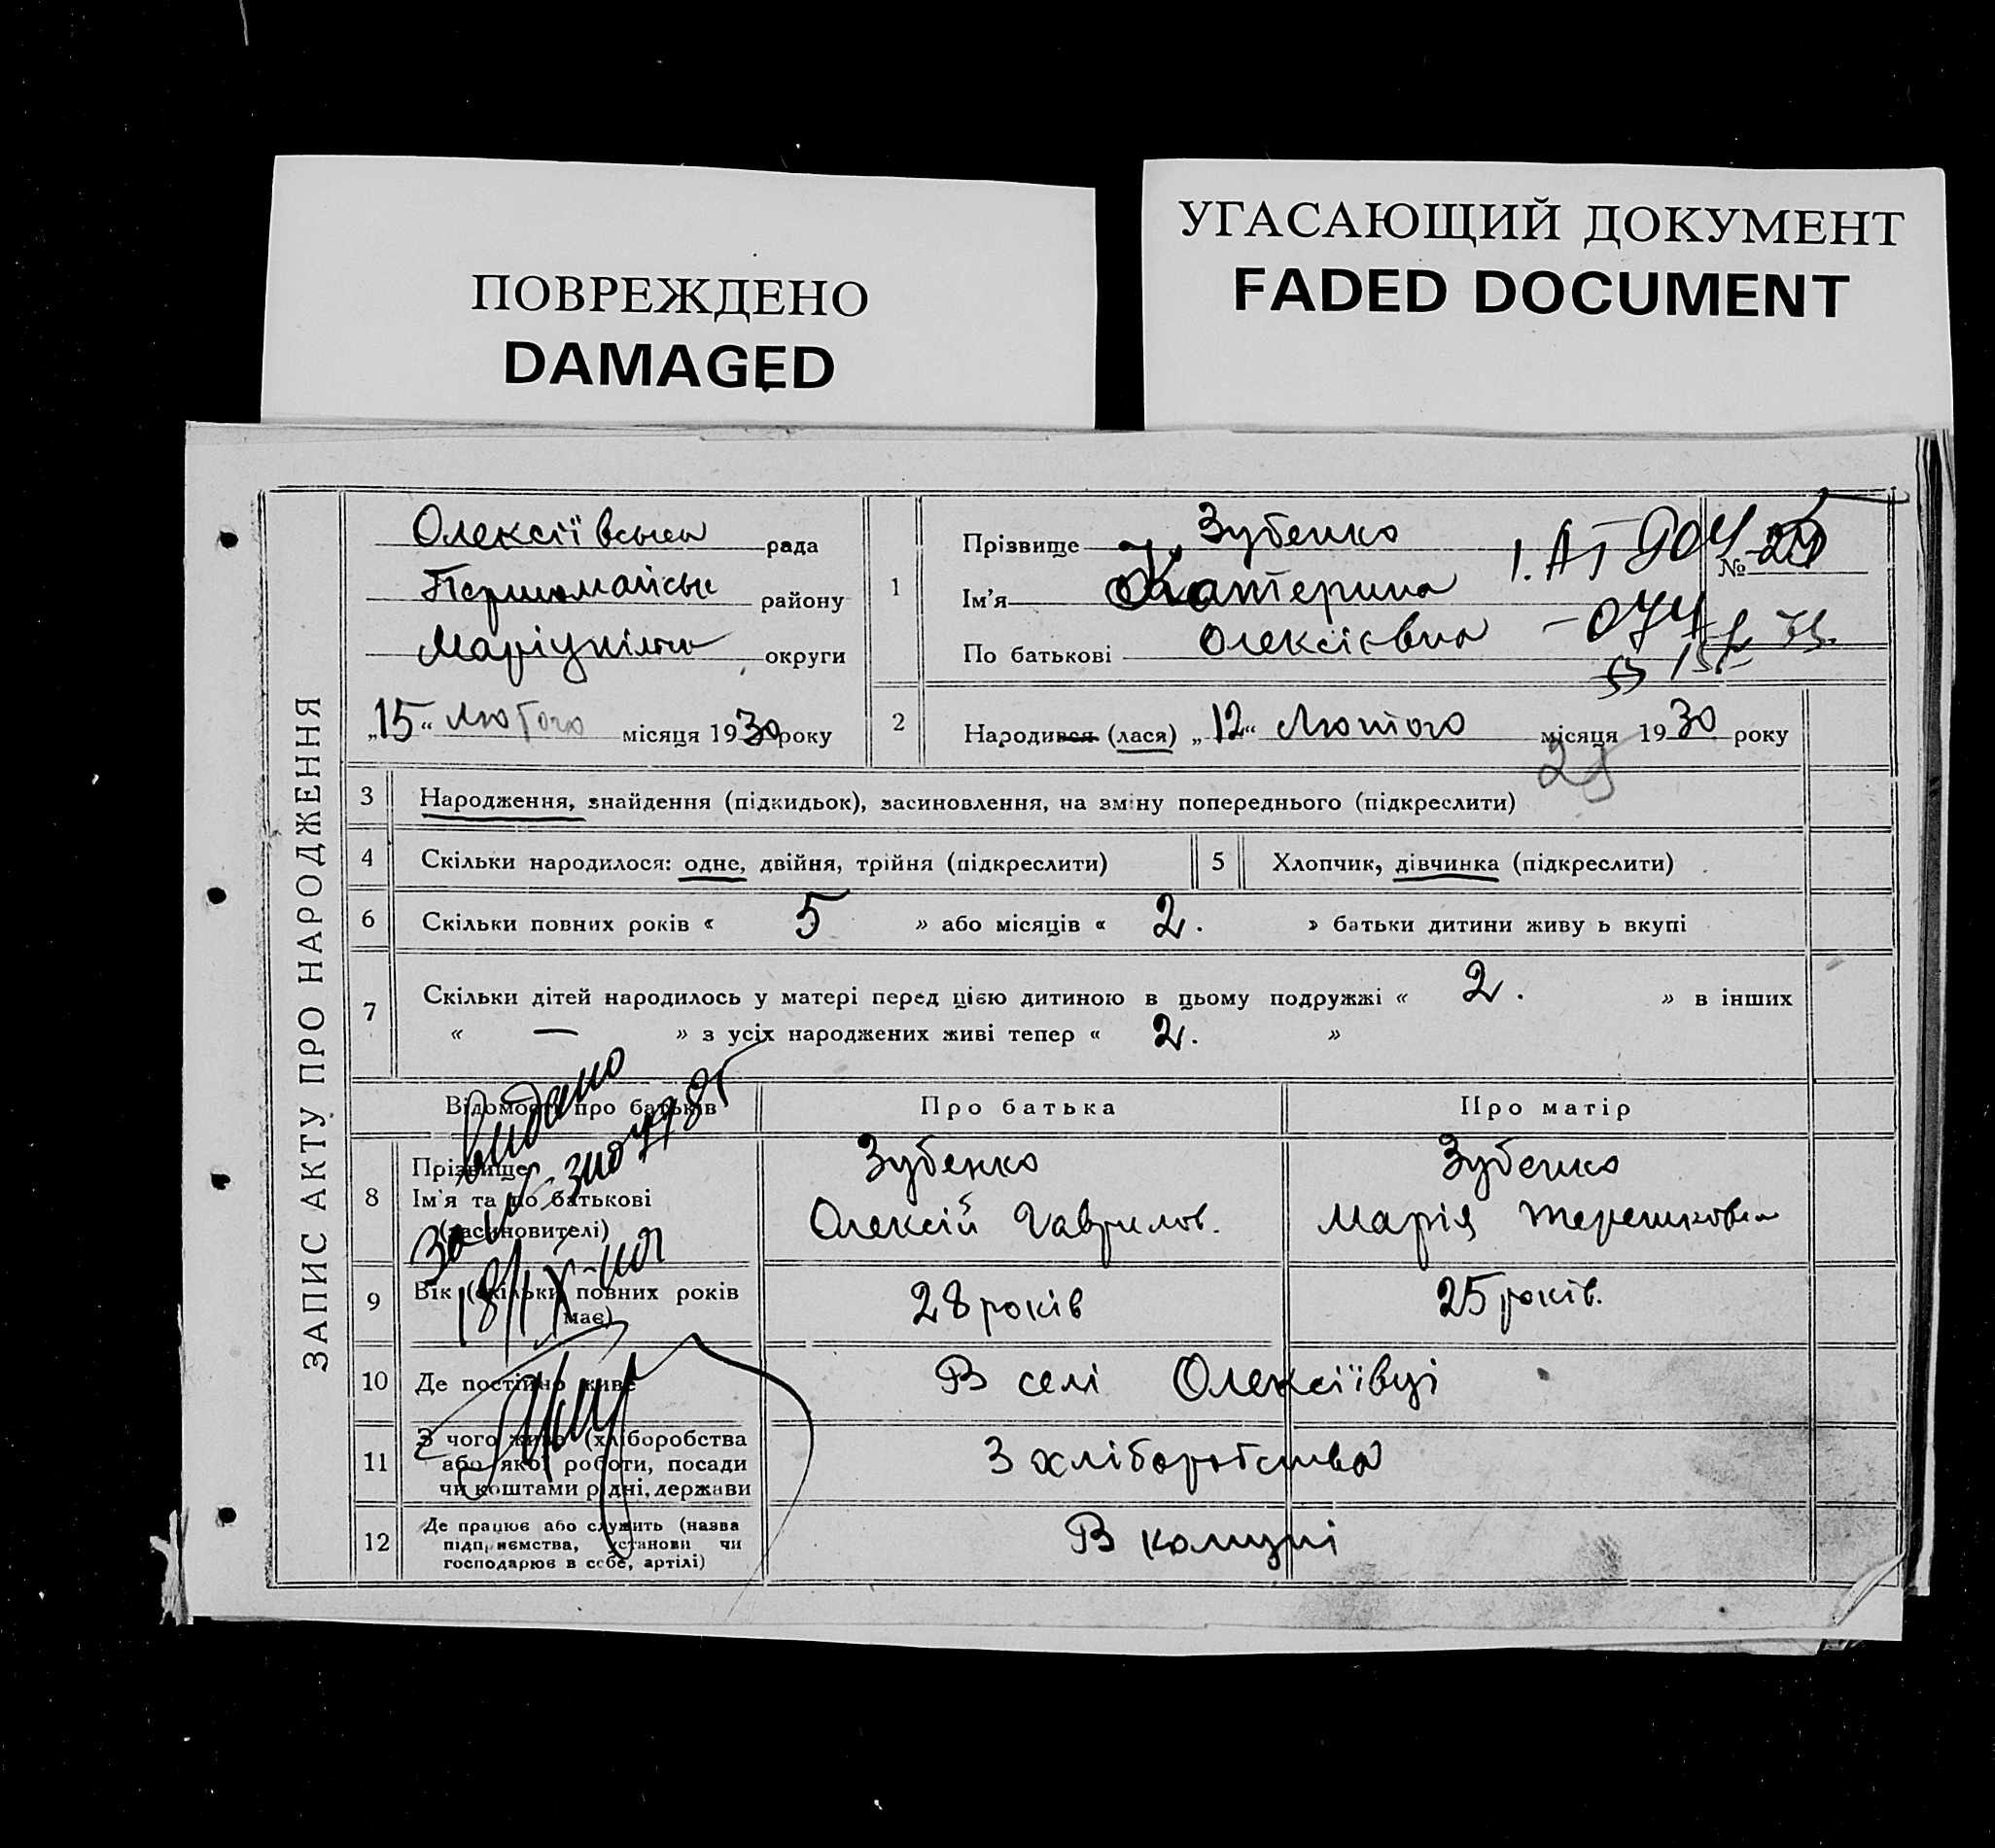 ПОВРЕЖДЕНО
DAMAGED
УГАСАЮЩИЙ ДОКУМЕНТ
FADED DOCUMENT
ЗАПИС АКТУ ПРО НАРОДЖЕННЯ
Олексіївська рада
Першомайськ району
Маріупільск округи
„15“ Лютого місяця 1930 року
1
Прізвище Зубенко
Ім’я Катерина
По батькові Олексієвна
№ 25
2
Народився (лася) „12“ Лютого місяця 1930 року
25
3 Народження, знайдення (підкидьок), засиновлення, на зміну попереднього (підкреслити)
4 Скільки народилося: одне, двійня, трійня (підкреслити)
5 Хлопчик, дівчинка (підкреслити)
6 Скільки повних років « 5 » або місяців « 2. » батьки дитини живу ь вкупі
7 Скільки дітей народилось у матері перед цією дитиною в цьому подружжі « 2. » в інших
« — » з усіх народжених живі тепер « 2. »
Відомості про батьків
Про батька
Про матір
8 Прізвище
Ім’я та по батькові
(засиновителі)
Зубенко
Олексій Гаврилов.
Зубенко
Марія Терешковна
9 Вік (скільки повних років
має)
28 років
25 років.
10 Де постійно живе
В селі Олексіївці
11 З чого живе (хліборобства
або якої роботи, посади
чи коштами рідні, держави
З хліборобства
12 Де працює або служить (назва
підприємства, установи чи
господарює в себе, артілі)
В комуні
Видано